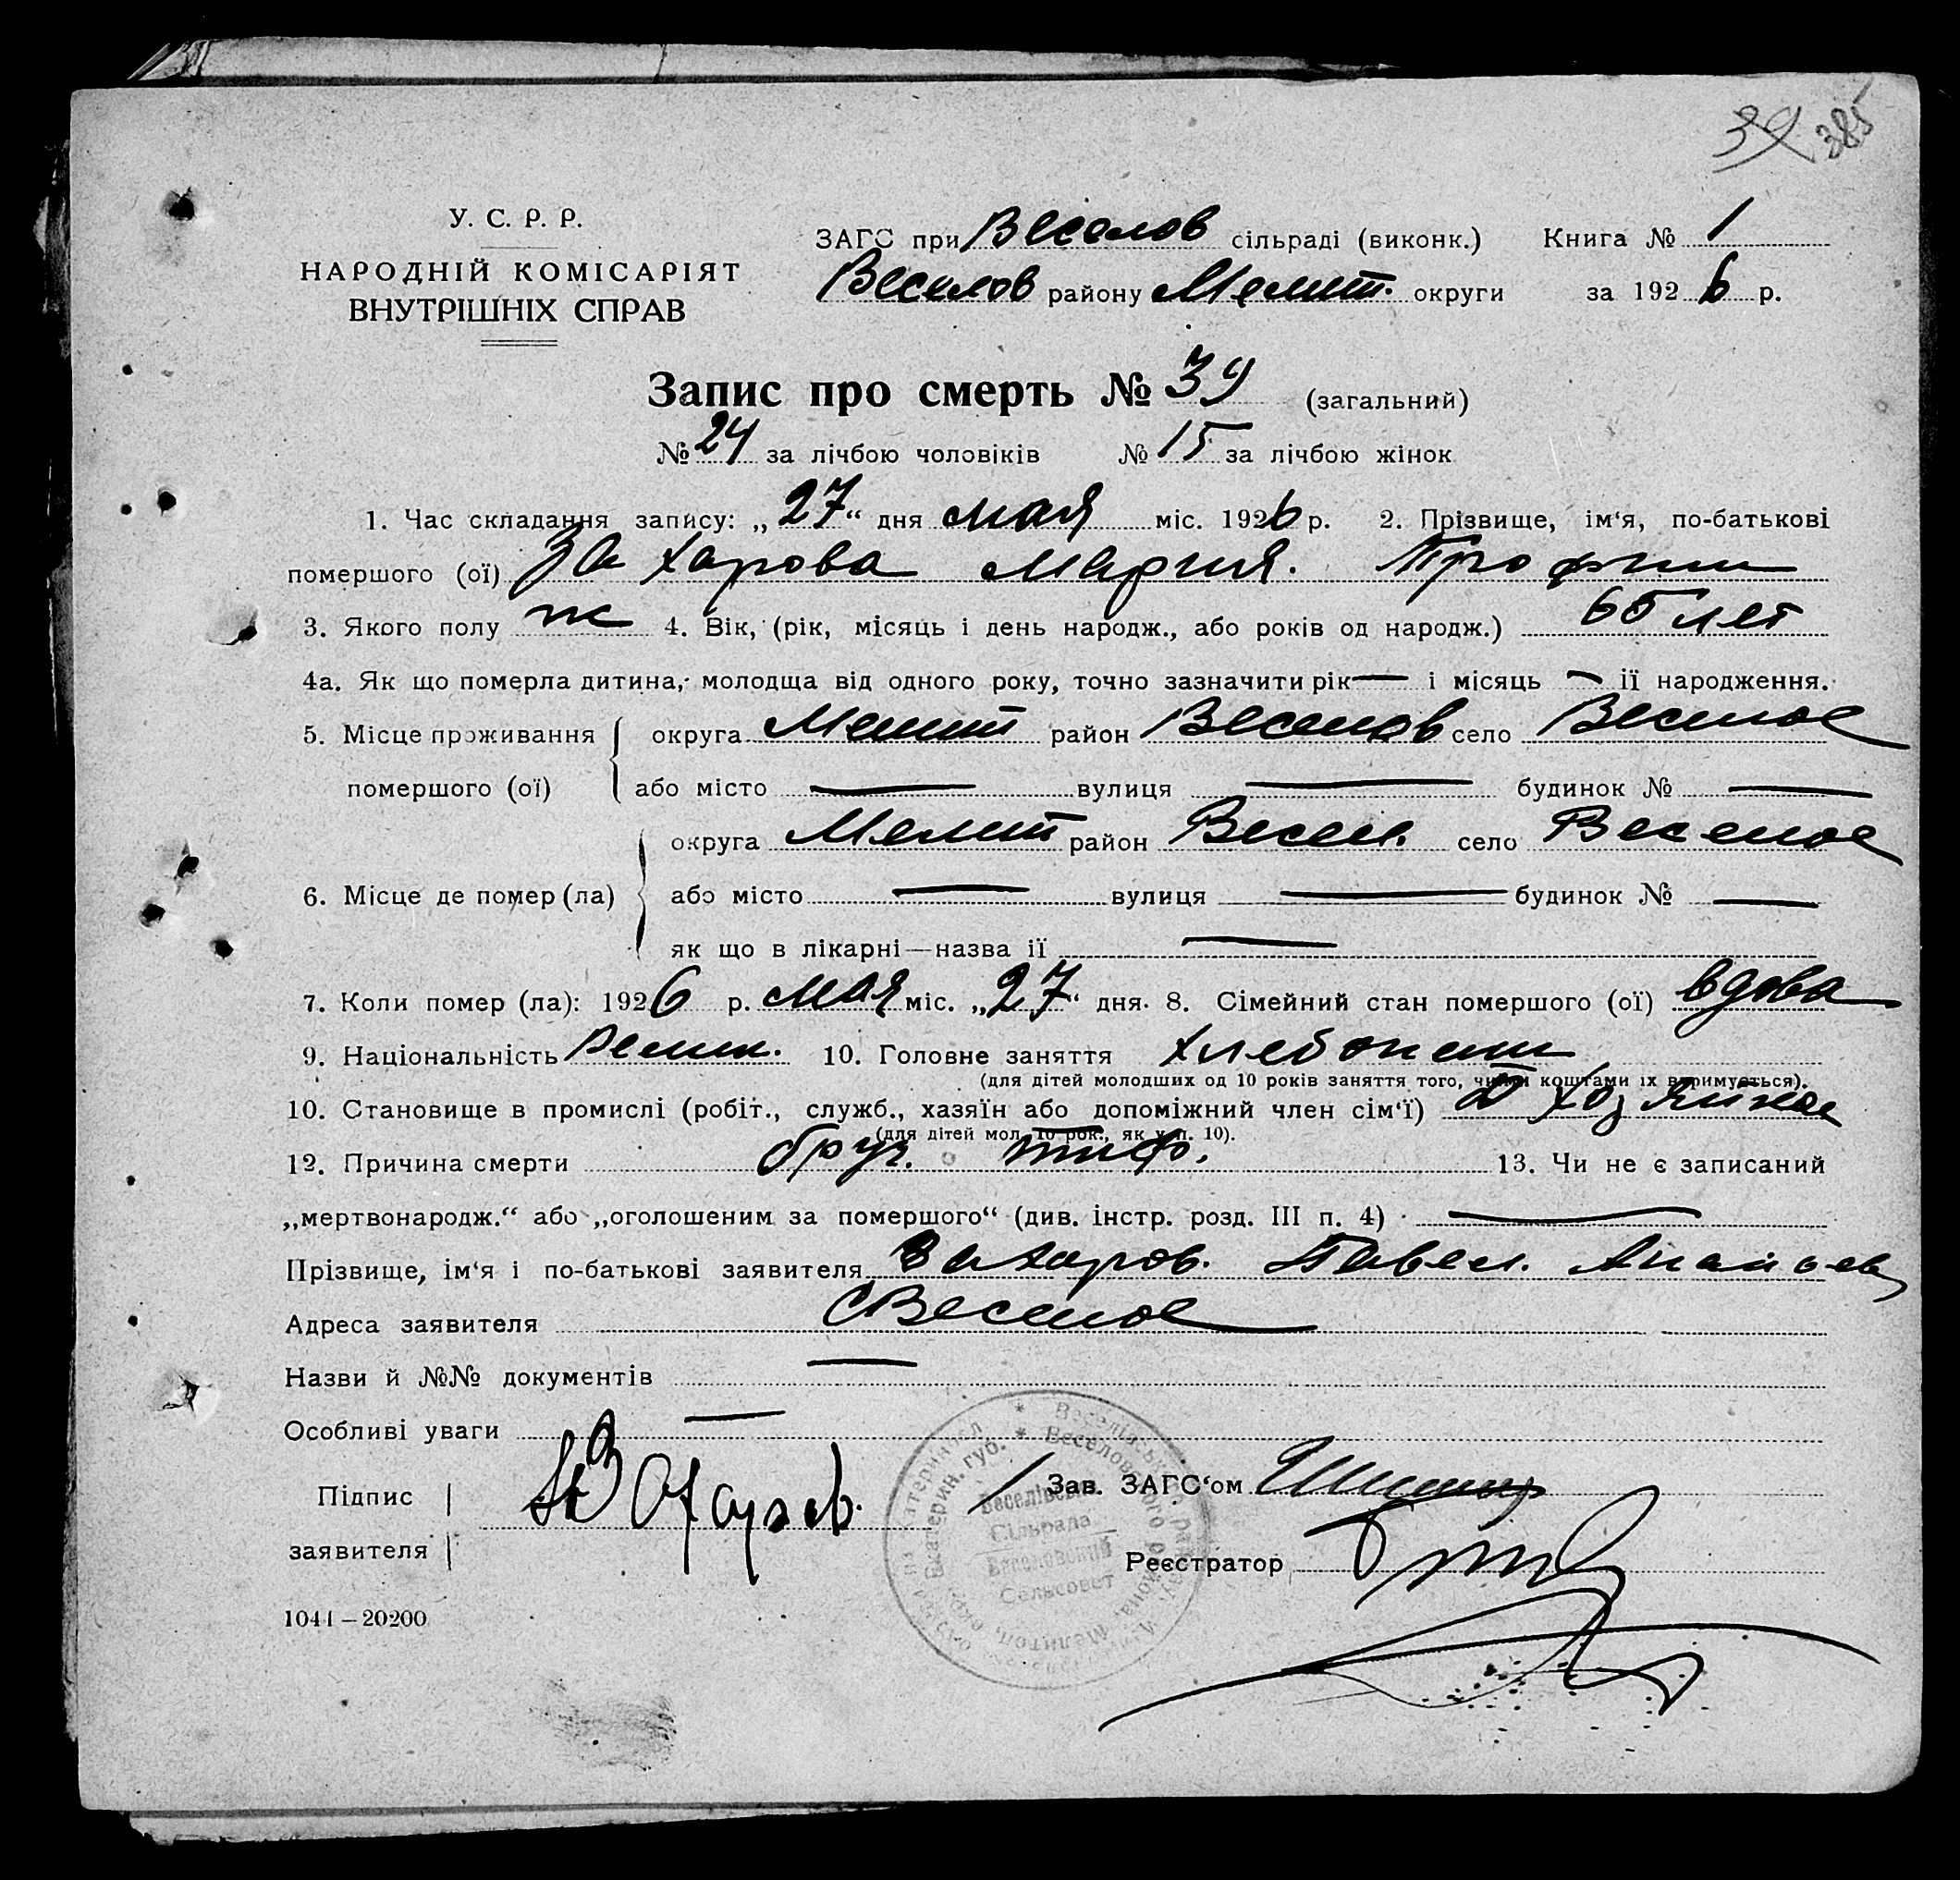 39 385
У. С. Р. Р.
НАРОДНІЙ КОМІСАРІЯТ
ВНУТРІШНІХ СПРАВ
ЗАГС при Веселов сільраді (виконк.) Книга № 1
Веселов району Мелит. округи за 1926 р.
Запис про смерть № 39 (загальний)
№ 24 за лічбою чоловіків № 15 за лічбою жінок
1. Час складання запису: „27“ дня мая міс. 1926 р. 2. Прізвище, ім‘я, по-батькові
помершого (ої) Захарова Мария. Трофим
3. Якого полу ж 4. Вік, (рік, місяць і день народж., або років од народж.) 65 лет
4а. Як що померла дитина, молодща від одного року, точно зазначити рік — і місяць — її народження.
5. Місце проживання округа Мелит район Веселов село Веселое
помершого (ої) або місто — вулиця — будинок № —
округа Мелит район Весел. село Веселое
6. Місце де помер (ла) або місто — вулиця — будинок № —
як що в лікарні—назва її —
7. Коли помер (ла): 1926 р. мая міс. „27“ дня. 8. Сімейний стан помершого (ої) вдова
9. Національність 10. Головне заняття хлебопаш
(для дітей молодших од 10 років заняття того, чиїми коштами їх втримується).
10. Становище в промислі (робіт., служб., хазяїн або допоміжний член сім‘ї) хозяйное
(для дітей мол. 10 рок., як у п. 10).
12. Причина смерти брүш. тиф. 13. Чи не є записаний
„мертвонародж.“ або „оголошеним за помершого“ (див. інстр. розд. III п. 4) —
Прізвище, ім‘я і по-батькові заявителя Захаров. Павел. Ананьев
Адреса заявителя с Веселое
Назви й №№ документів —
Особливі уваги —
Підпис Захаров. Зав. ЗАГС‘ом
заявителя Реєстратор
Веселівська
Сільрада
Веселовский
Сельсовет
1041—20200